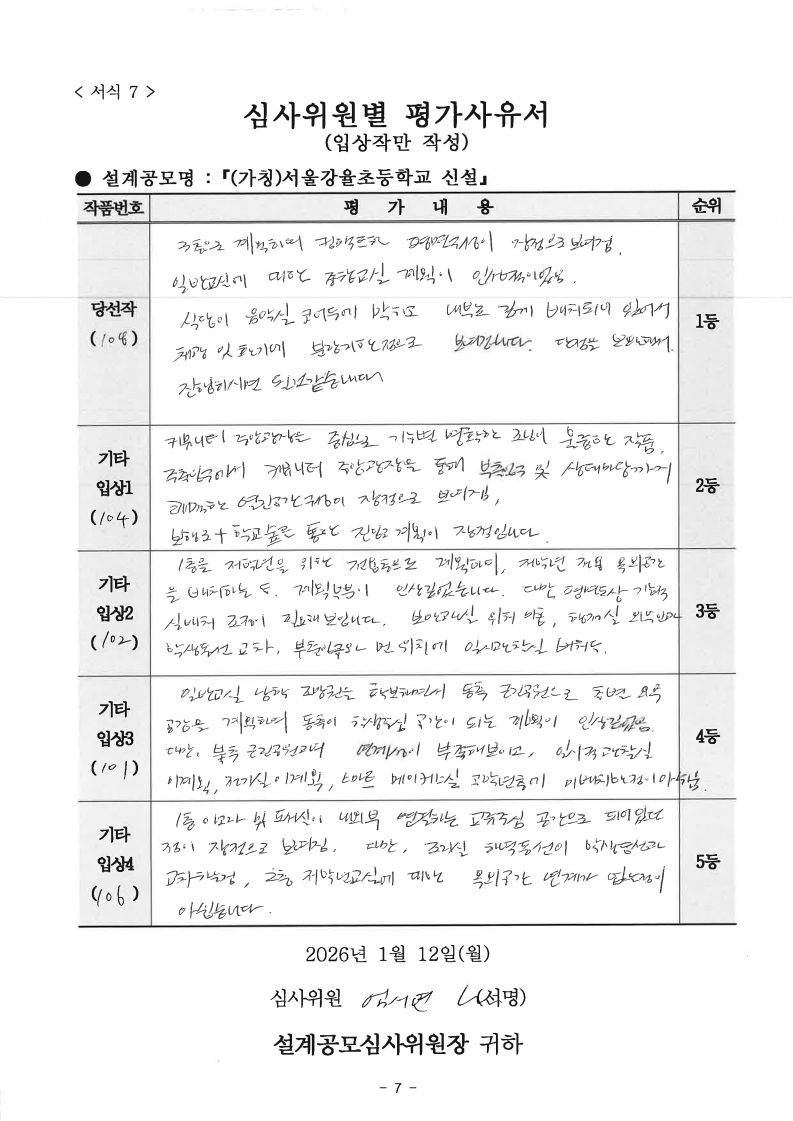 < 서식 7 >
심사위원별 평가사유서
(입상작만 작성)
● 설계공모명 : 『(가칭)서울강율초등학교 신설』
작품번호 평 가 내 용 순위
당선작
(108)
3층으로 계획하며 컴팩트한 평면구성이 장점으로 보여짐.
일반교실에 대한 중앙교실 계획이 인상적이었음.
식당이 음악실 코어등에 막히고 내부로 깊게 배치되어 있어서
채광 및 환기에 불량기한점으로 보여집니다. 단점을 보완해서
진행하시면 될것같습니다
1등
기타
입상1
(104)
커뮤니티 중앙광장을 중심으로 기능별 명확한 조닝이 훌륭한 작품,
주출입구에서 커뮤니티 중앙광장을 통해 부출입구 및 생태마당까지
쾌적한 열린공간 구성이 장점으로 보여짐,
보행로+학교숲을 통한 진입 계획이 장점입니다.
2등
기타
입상2
(102)
1층을 저학년을 위한 전용층으로 계획하며, 저학년 전용 옥외공간
을 배치하는 등. 계획부분이 인상깊었습니다. 다만 평면도상 기획적
실배치 조정이 필요해 보입니다. 보안관실 위치 미흡, 행정실 외부인과
학생동선 교차, 부출입구와 먼 위치에 일시관찰실 배치등.
3등
기타
입상3
(101)
일반교실 남향 조망권을 확보하면서 동측 근린공원으로 측면 옥외
공간을 계획하여 동측이 학생중심 공간이 되는 계획이 인상깊었음.
다만, 북측 근린공원과의 연계성이 부족해보이고, 일시적관찰실
미계획, 전기실 미계획, 스마트 메이커스실 고학년층에 미배치한점이 아쉬움.
4등
기타
입상4
(106)
1층 이고라 및 도서실이 내외부 연결하는 교육중심 공간으로 되어있던
점이 장점으로 보여짐. 다만, 조리실 하역동선이 학생동선과
교차하는점, 2층 저학년교실에 대한 옥외공간 연계가 없는점이
아쉽습니다.
5등
2026년 1월 12일(월)
심사위원 (서명)
설계공모심사위원장 귀하
- 7 -